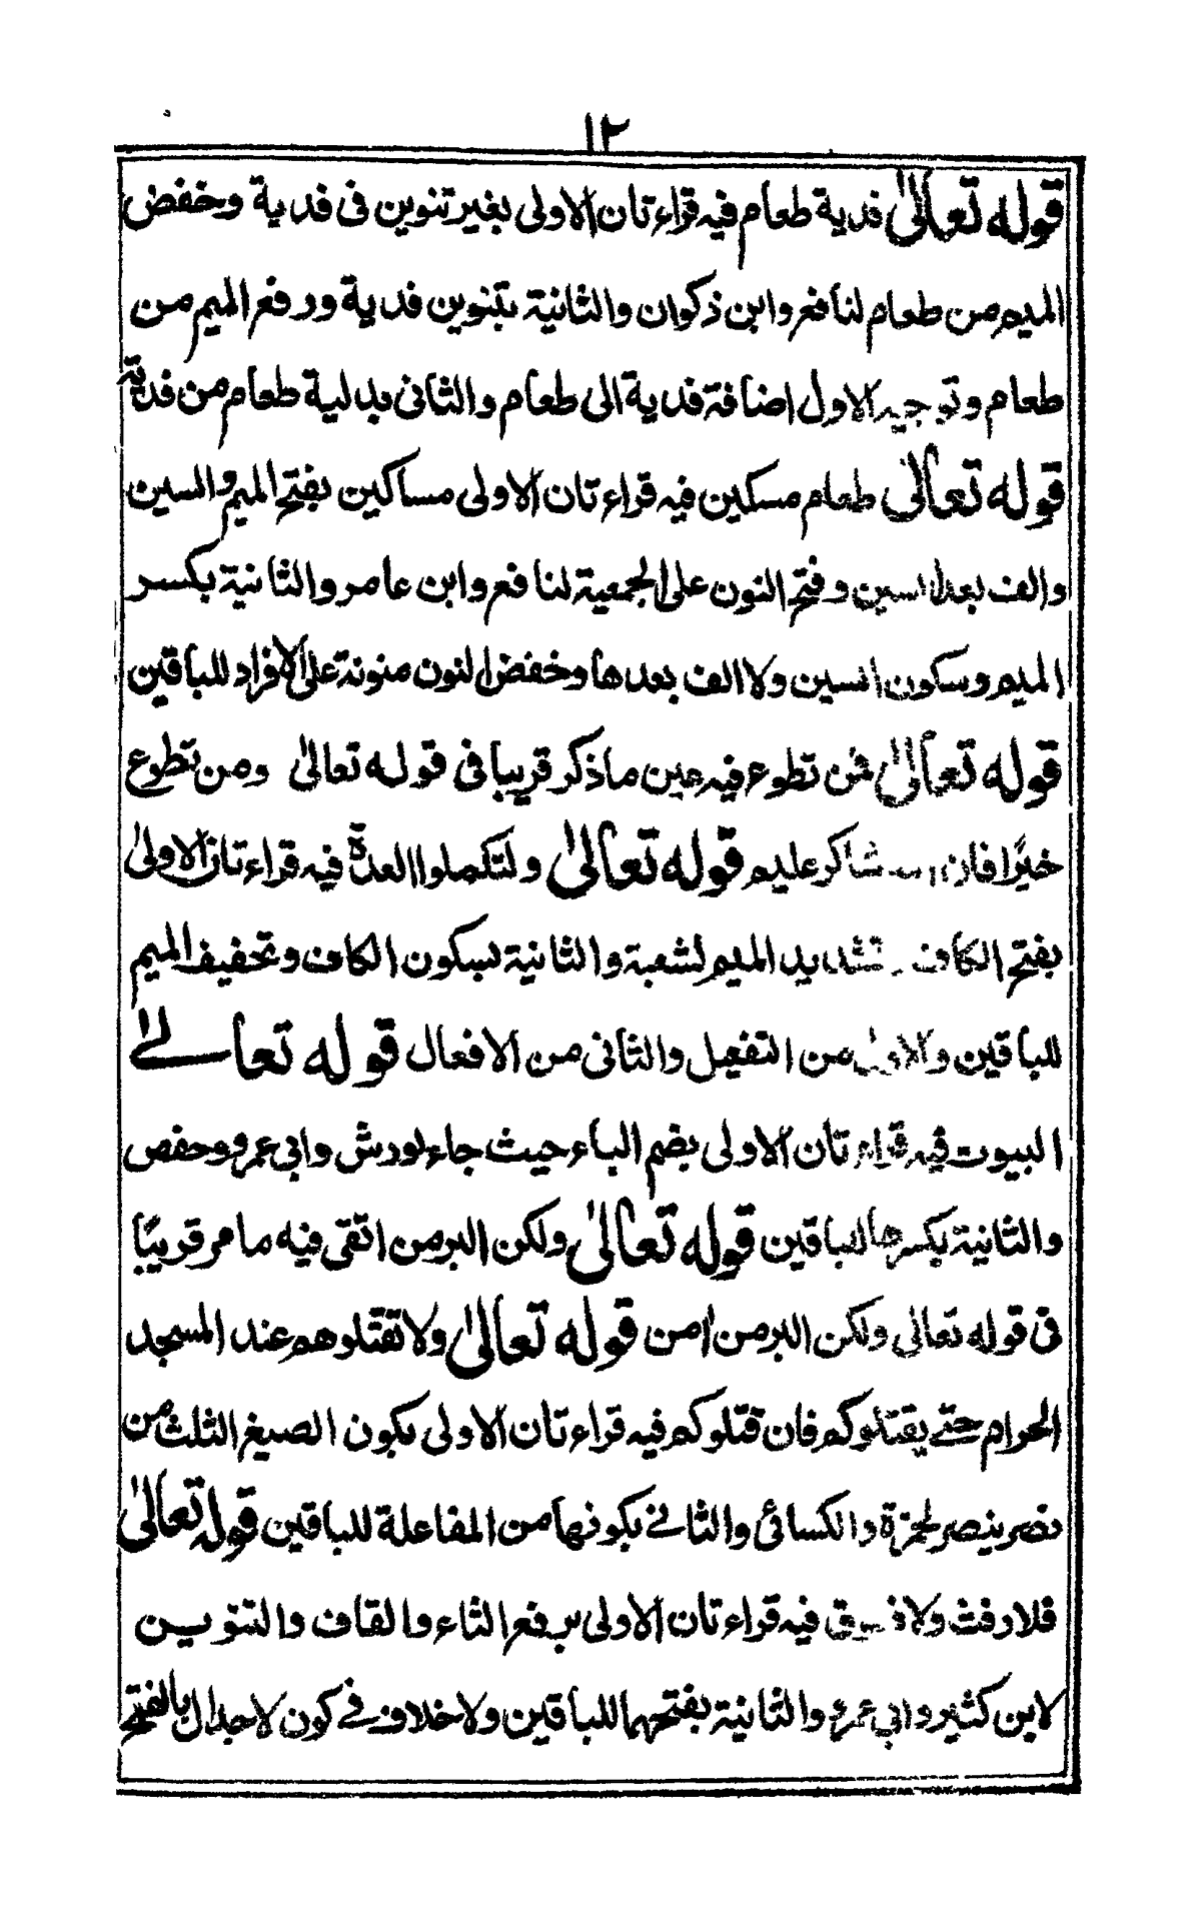 ١٢
قوله تعالىٰ فدية طعام فيه قراءتان الاولى بغير تنوين فى فدية وخفض
الميم من طعام لنافع وابن ذكوان والثانية بتنوين فدية ورفع الميم من
طعام وتوجيه الاول اضافة فدية الى طعام والثانى بدلية طعام من فدية
قوله تعالىٰ طعام مسكين فيه قراءتان الاولى مساكين بفتح الميم والسين
والف بعد السين وفتح النون على الجمعية لنافع وابن عامر والثانية بكسر
الميم وسكون السين ولا الف بعدها وخفض النون منونة على الافراد للباقين
قوله تعالىٰ فمن تطوع فيه عين ما ذكر قريبا فى قوله تعالىٰ ومن تطوع
خيرًا فان الله شاكر عليم قوله تعالىٰ ولتكملوا العدّة فيه قراءتان الاولىٰ
بفتح الكاف وتشديد الميم لشعبة والثانية بسكون الكاف وتخفيف الميم
للباقين والاول من التفعيل والثانى من الافعال قوله تعالےٰ
البيوت فيه قراءتان الاولى بضم الباء حيث جاء لورش وابي عمرو وحفص
والثانية بكسرها للباقين قوله تعالىٰ ولكن البر من اتقى فيه ما مر قريبًا
فى قوله تعالى ولكن البر من اٰمن قوله تعالىٰ ولا تقتلوهم عند المسجد
الحرام حتے يقتلوكم فان قتلوكم فيه قراءتان الاولى بكون الصيغ الثلث من
نصر ينصر لحمزة والكسائى والثانے بكونها من المفاعلة للباقين قوله تعالىٰ
فلا رفث ولا فسوق فيه قراءتان الاولى برفع الثاء والقاف والتنوين
لابن كثير وابي عمرو والثانية بفتحهما للباقين ولا خلاف فے كون لا جدال بالفتح